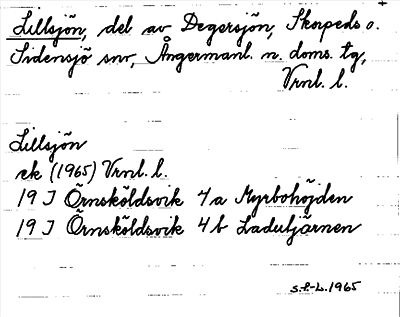 Lillsjön, del av Degersjön, Skorpeds o.
Sidensjö snr, Ångermanl. n. doms. tg,
Vrnl. l.
Lillsjön
ek (1965) Vrnl. l.
19 J Örnsköldsvik 4a Myrbohöjden
19 J Örnsköldsvik 4b Ladutjärnen
s.f-L.1965